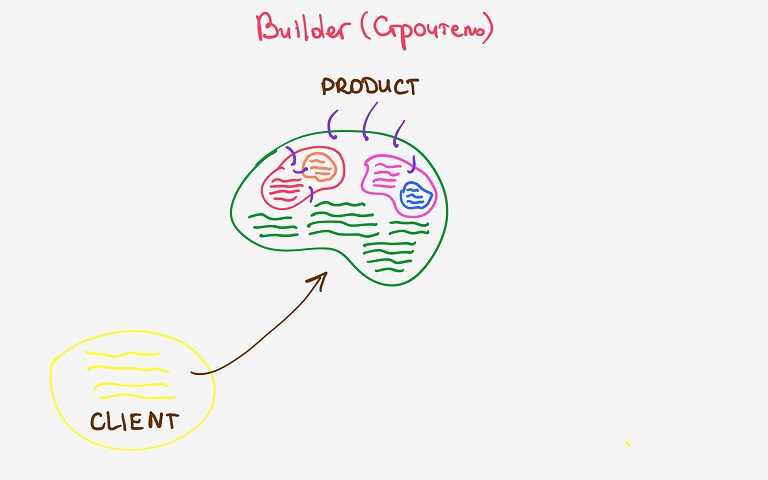 Builder (Строитель)
PRODUCT
CLIENT